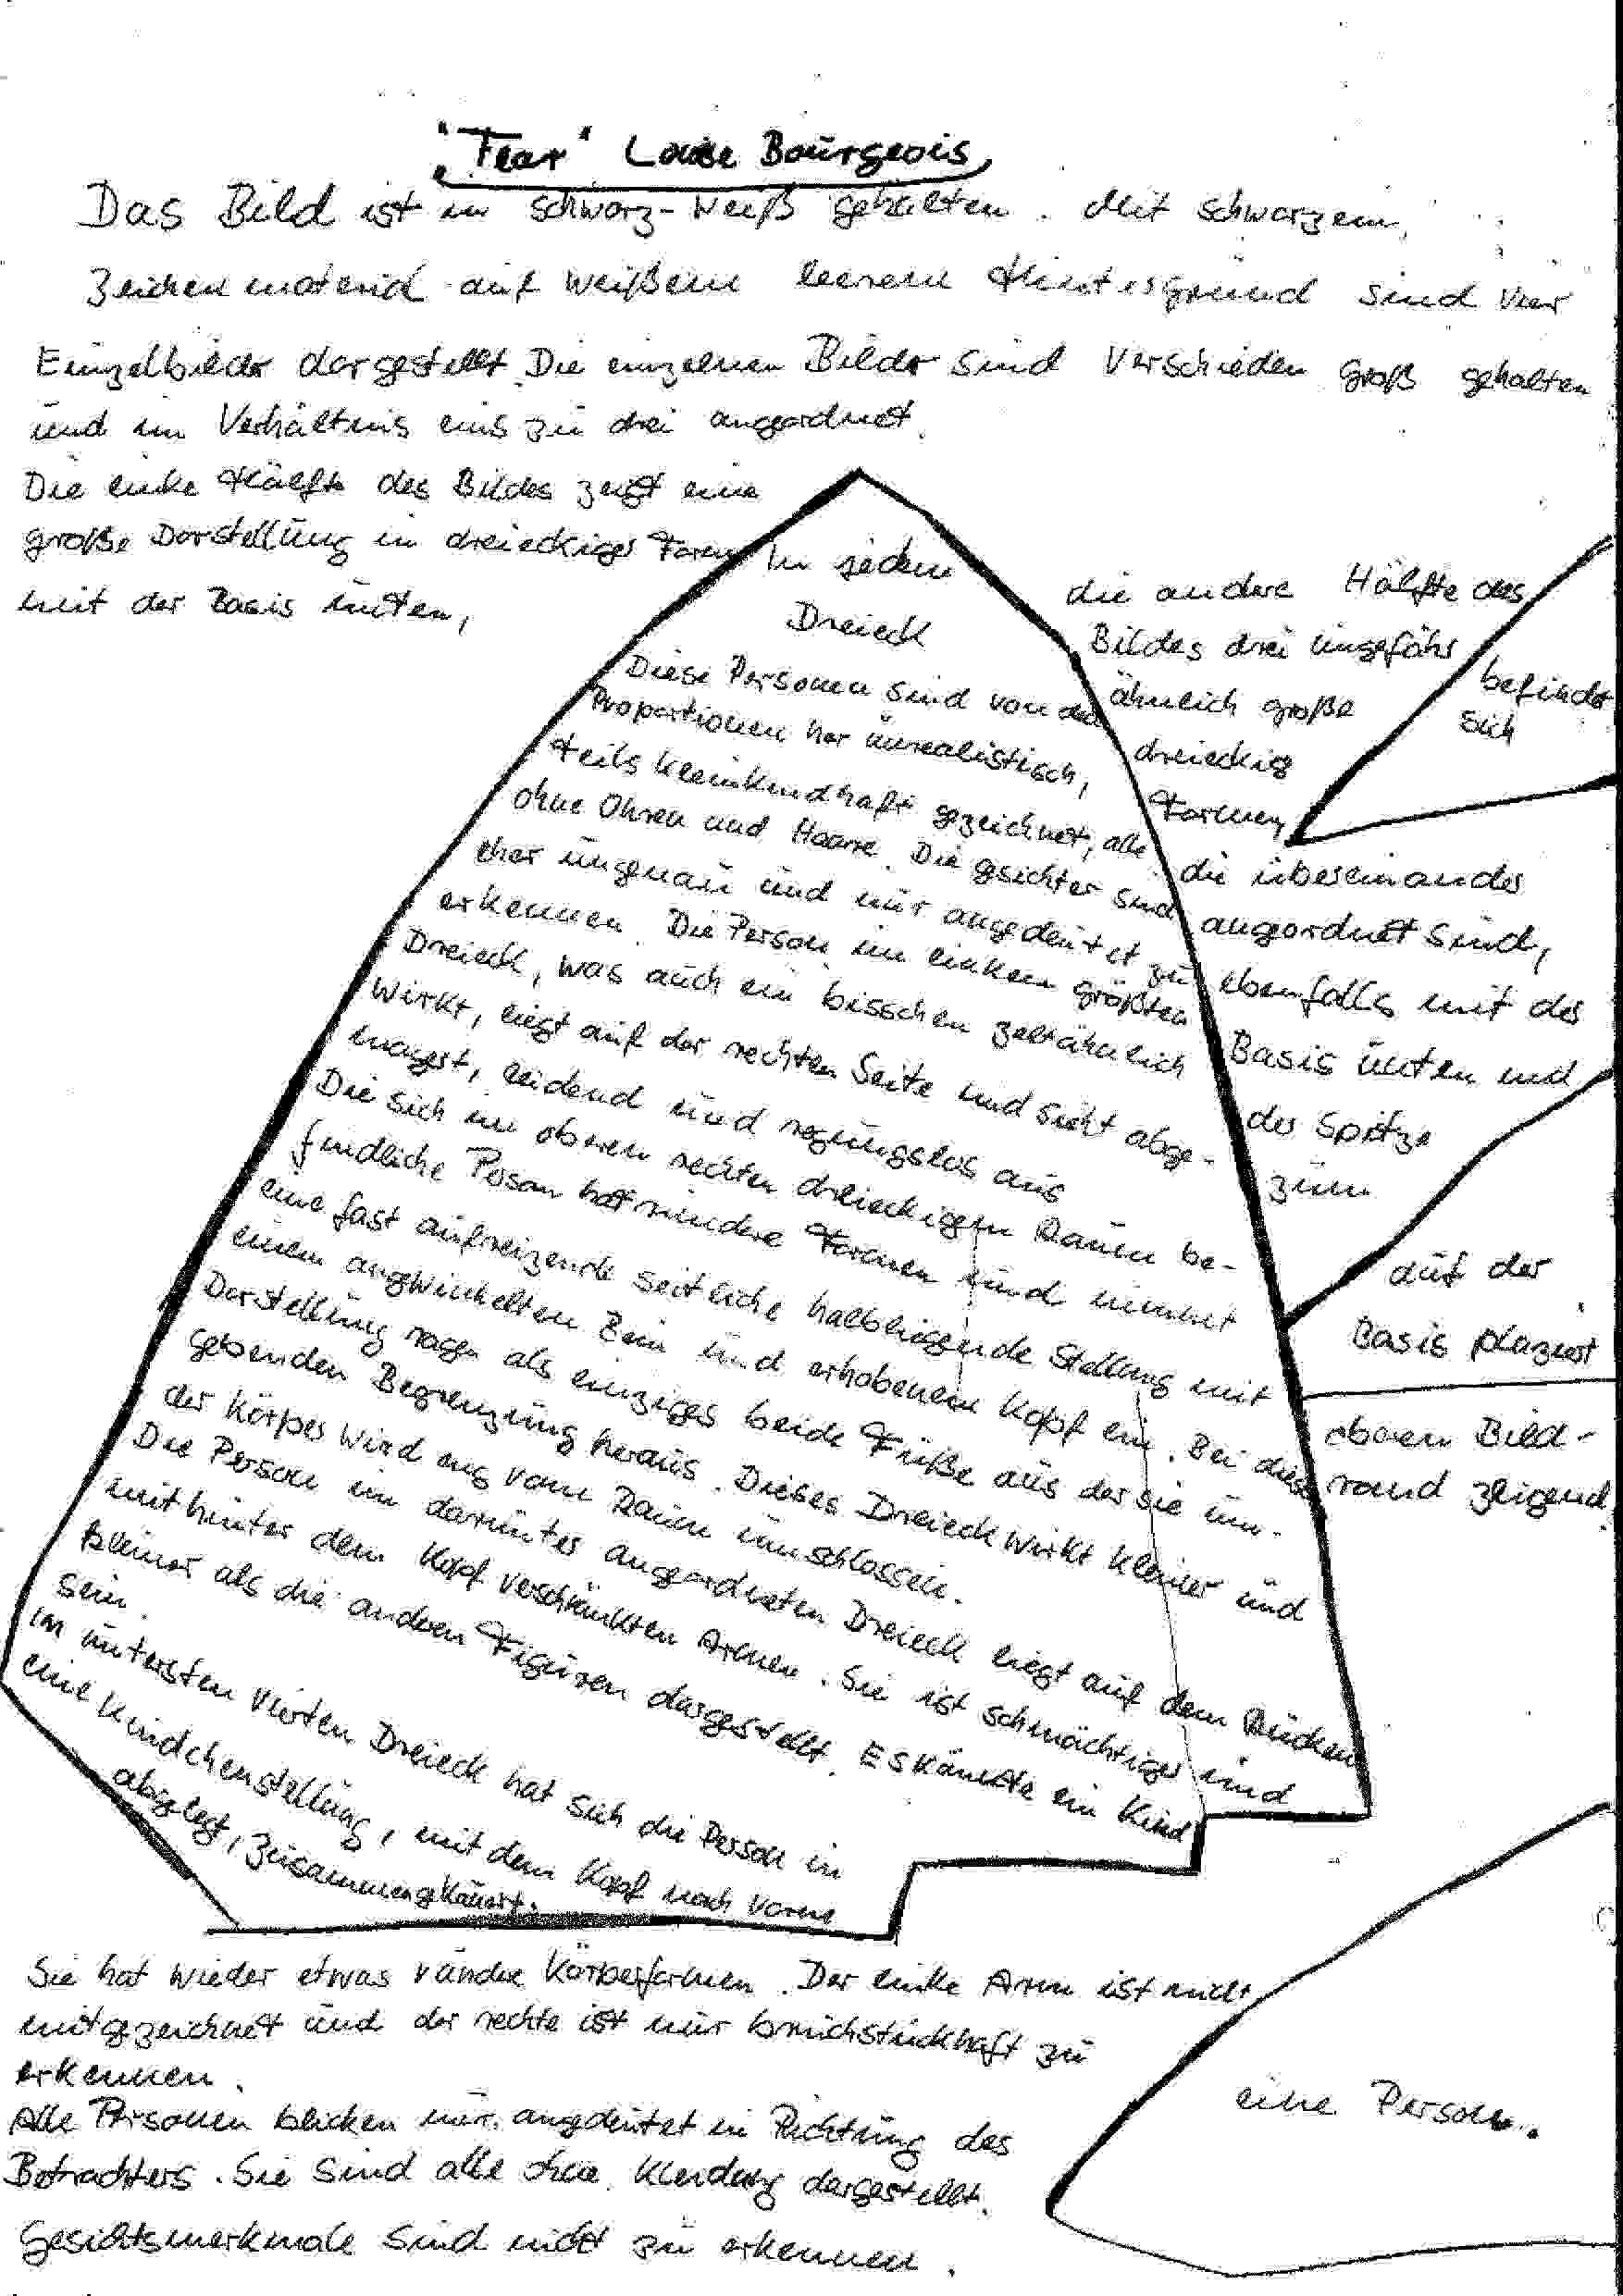 "Fear" Louise Bourgeois
Das Bild ist in schwarz-weiß gehalten. Mit schwarzem
Zeichenmaterial auf weißem leerem Hintergrund sind vier
Einzelbilder dargestellt. Die einzelnen Bilder sind verschieden groß gehalten
und im Verhältnis eins zu drei angeordnet.
Die linke Hälfte des Bildes zeigt eine
große Darstellung in dreieckiger Form
mit der Basis unten,
die andere Hälfte des
Bildes drei ungefähr
ähnlich große
dreieckig
Formen,
die übereinander
angeordnet sind,
ebenfalls mit der
Basis unten und
der Spitze
zum
oberen Bild-
rand zeigend.
In jedem
Dreieck
befindet
sich
auf der
Basis plaziert
eine Person.
Diese Personen sind von den
Proportionen her unrealistisch,
teils kleinkindhaft gezeichnet, alle
ohne Ohren und Haare. Die Gesichter sind
eher ungenau und nur angedeutet zu
erkennen. Die Person im linken größten
Dreieck, was auch ein bisschen zeltähnlich
wirkt, liegt auf der rechten Seite und sieht abge-
magert, leidend und regungslos aus
Die sich im oberen rechten dreieckigen Raum be-
findliche Person hat rundere Formen und nimmt
eine fast aufreizende seitliche halbliegende Stellung mit
einem angwinkelten Bein und erhobenem Kopf ein. Bei diese
Darstellung ragen als einziges beide Füße aus der sie um-
gebenden Begrenzung heraus. Dieses Dreieck wirkt kleiner und
der Körper wird eng vom Raum umschlossen.
Die Person im darunter angeordneten Dreieck liegt auf dem Rücken
mit hinter dem Kopf verschränkten Armen. Sie ist schmächtiger und
kleiner als die anderen Figuren dargestellt. Es könnte ein Kind
sein.
Im untersten vierten Dreieck hat sich die Person in
eine Kindchenstellung, mit dem Kopf nach vorne
abgelegt, zusammengekauert.
Sie hat wieder etwas rundre Körperformen. Der linke Arm ist nicht
mitgezeichnet und der rechte ist nur bruchstückhaft zu
erkennen.
Alle Personen blicken nur angedeutet in Richtung des
Betrachters. Sie sind alle ohne Kleidung dargestellt.
Gesichtsmerkmale sind nicht zu erkennen.